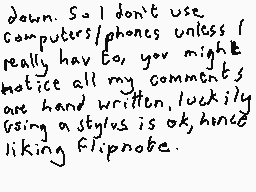 down. So I don't use
computers/phones unless I
really hav to, you might
notice all my comments
are hand written, luckily
using a stylus is ok, hence
liking Flipnote.